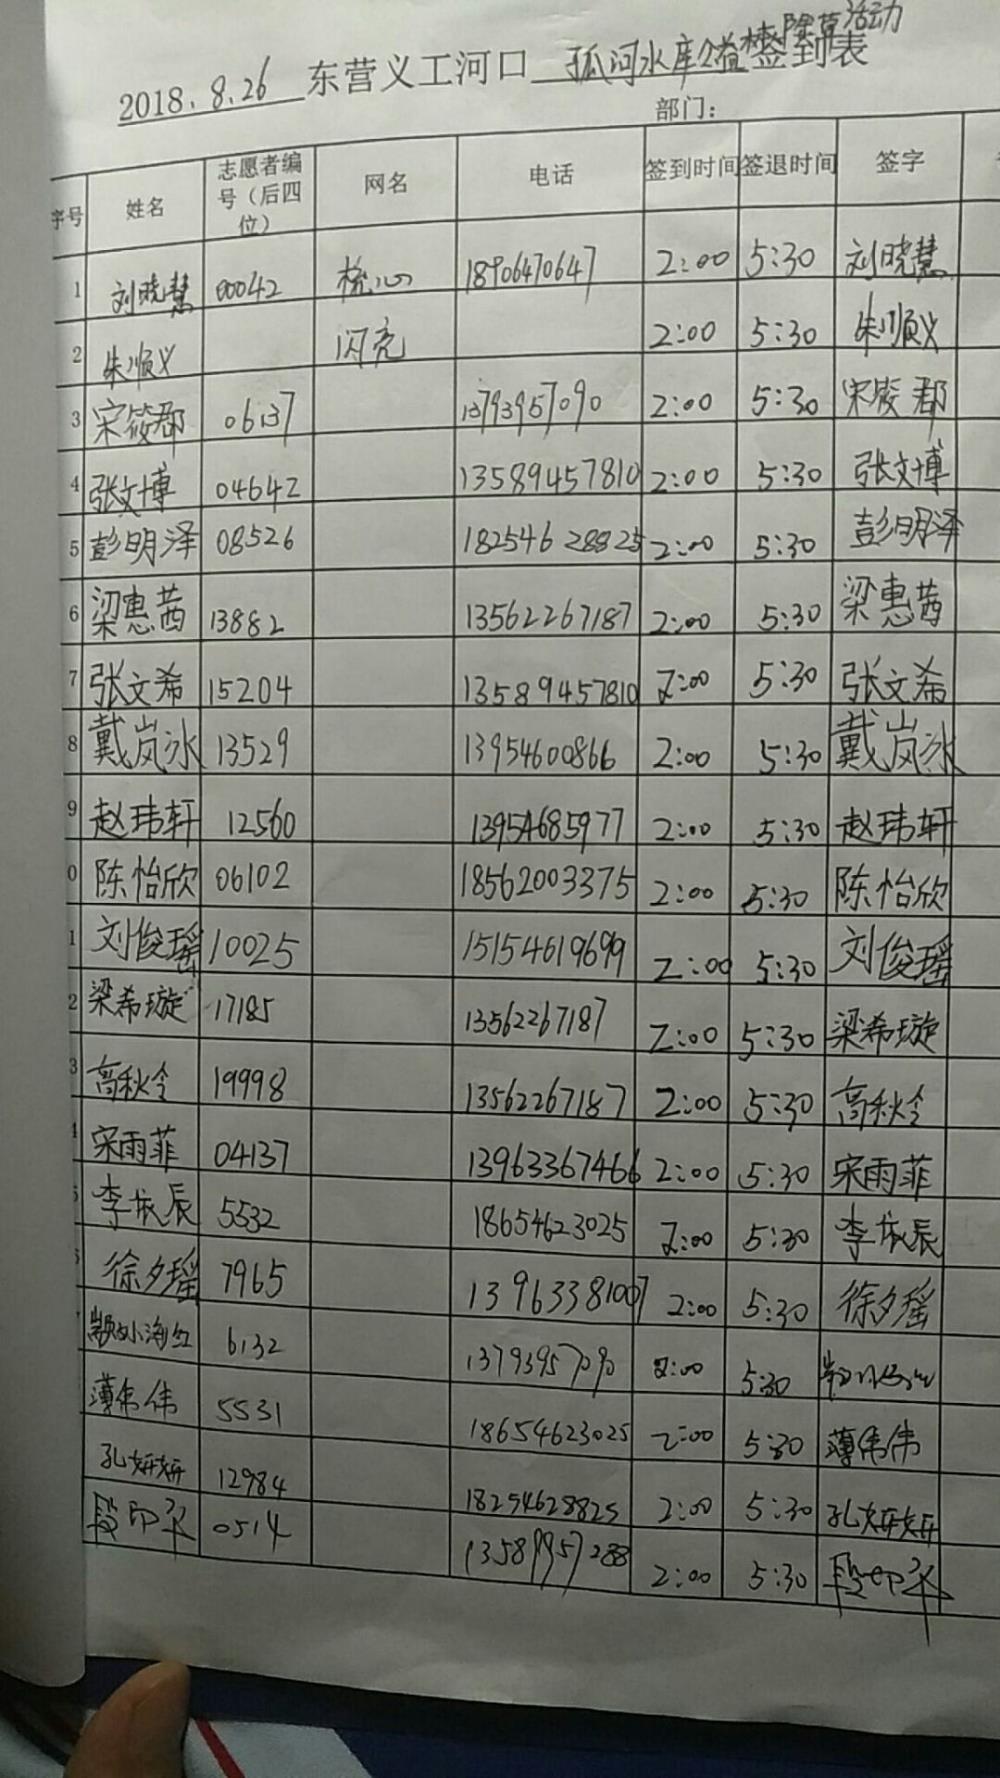 2018.8.26 东营义工河口 孤河水库公益林除草活动 签到表
部门:
序号 姓名 志愿者编号(后四位) 网名 电话 签到时间 签退时间 签字
1 刘晓慧 00042 18906470647 2:00 5:30 刘晓慧
2 朱顺义 闪亮 2:00 5:30 朱顺义
3 宋筱郡 06137 13793957090 2:00 5:30 宋筱郡
4 张文博 04642 13589457810 2:00 5:30 张文博
5 彭明泽 08526 18254628825 2:00 5:30 彭明泽
6 梁惠茜 13882 13562267187 2:00 5:30 梁惠茜
7 张文希 15204 13589457810 2:00 5:30 张文希
8 戴岚冰 13529 13954600866 2:00 5:30 戴岚冰
9 赵玮轩 12560 13954685977 2:00 5:30 赵玮轩
0 陈怡欣 06102 18562003375 2:00 5:30 陈怡欣
1 刘俊瑶 10025 15154619699 2:00 5:30 刘俊瑶
2 梁希璇 17185 13562267187 2:00 5:30 梁希璇
3 高秋令 19998 13562267187 2:00 5:30 高秋令
4 宋雨菲 04137 13963367466 2:00 5:30 宋雨菲
5 李宸辰 5532 18654623025 2:00 5:30 李宸辰
6 徐夕瑶 7965 13963381007 2:00 5:30 徐夕瑶
海红 6132 13793957090 2:00 5:30
薄伟伟 5531 18654623025 2:00 5:30 薄伟伟
孔妍妍 12984 18254628825 2:00 5:30 孔妍妍
段印平 0514 13589957288 2:00 5:30 段印平